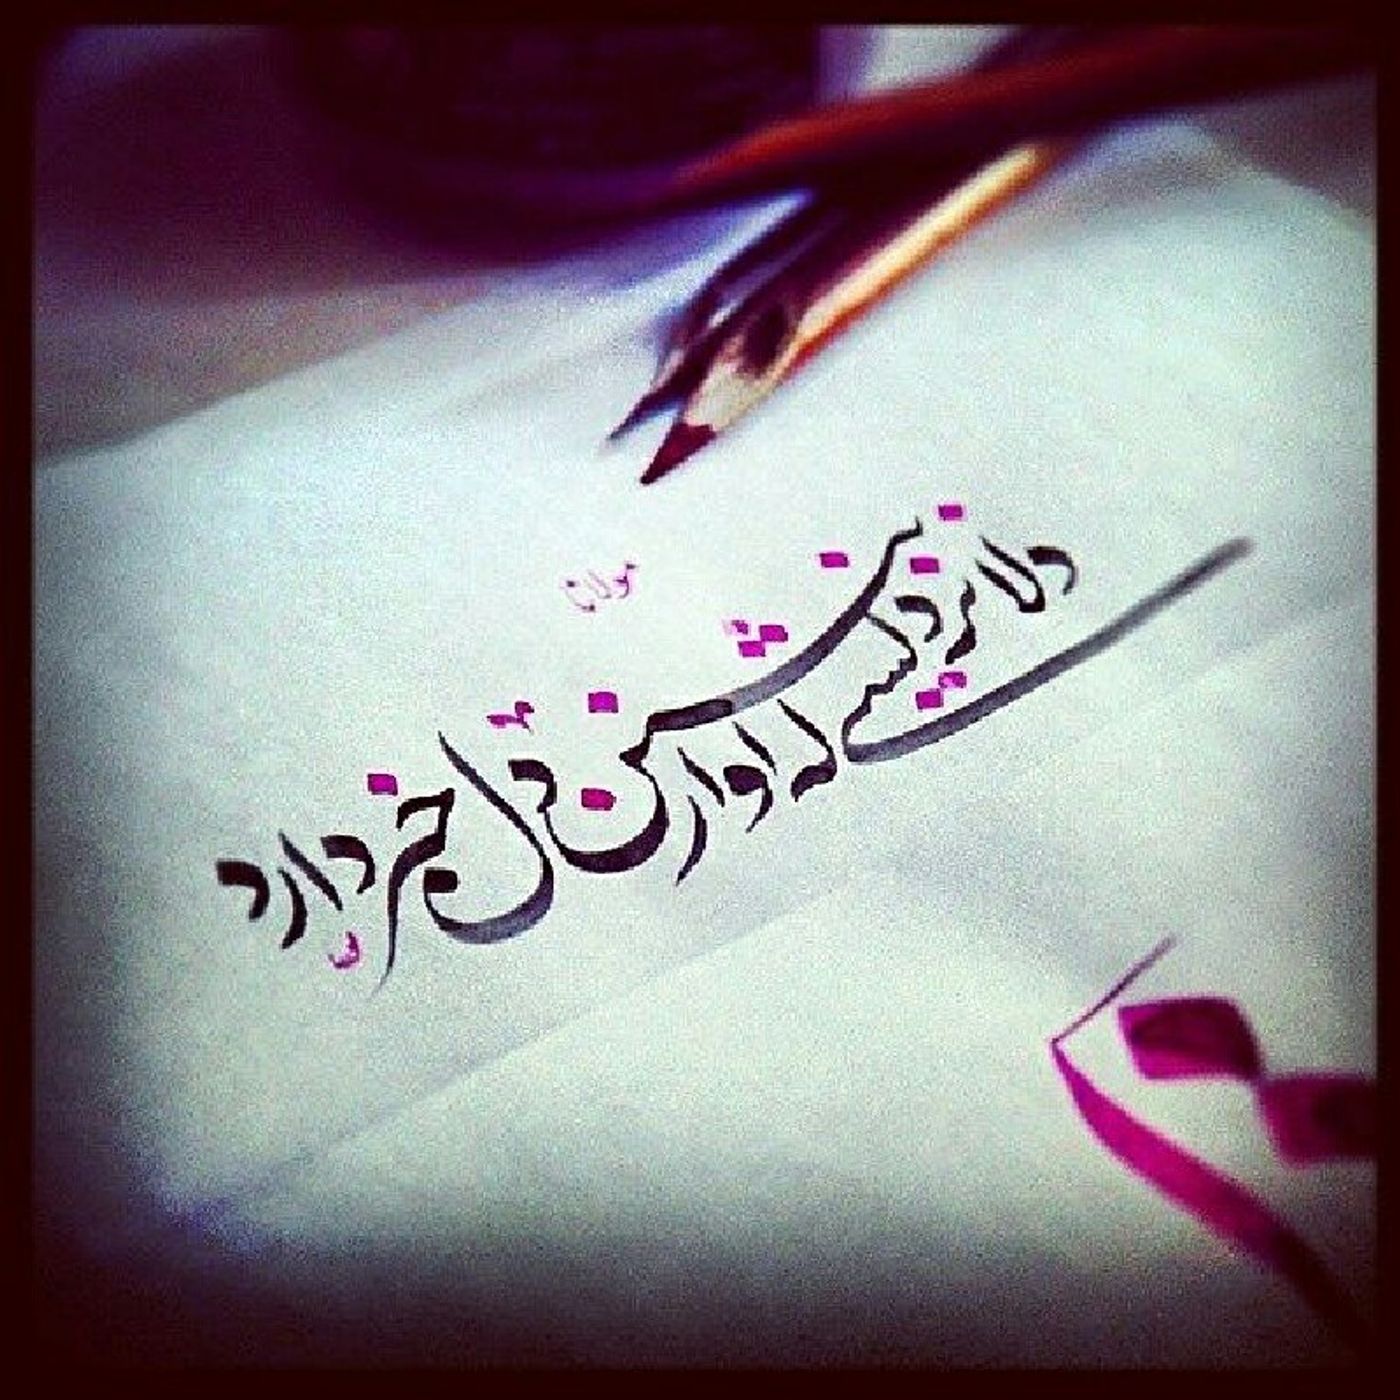 دلا نزد کسی بنشین که او از دل خبر دارد
مولانا